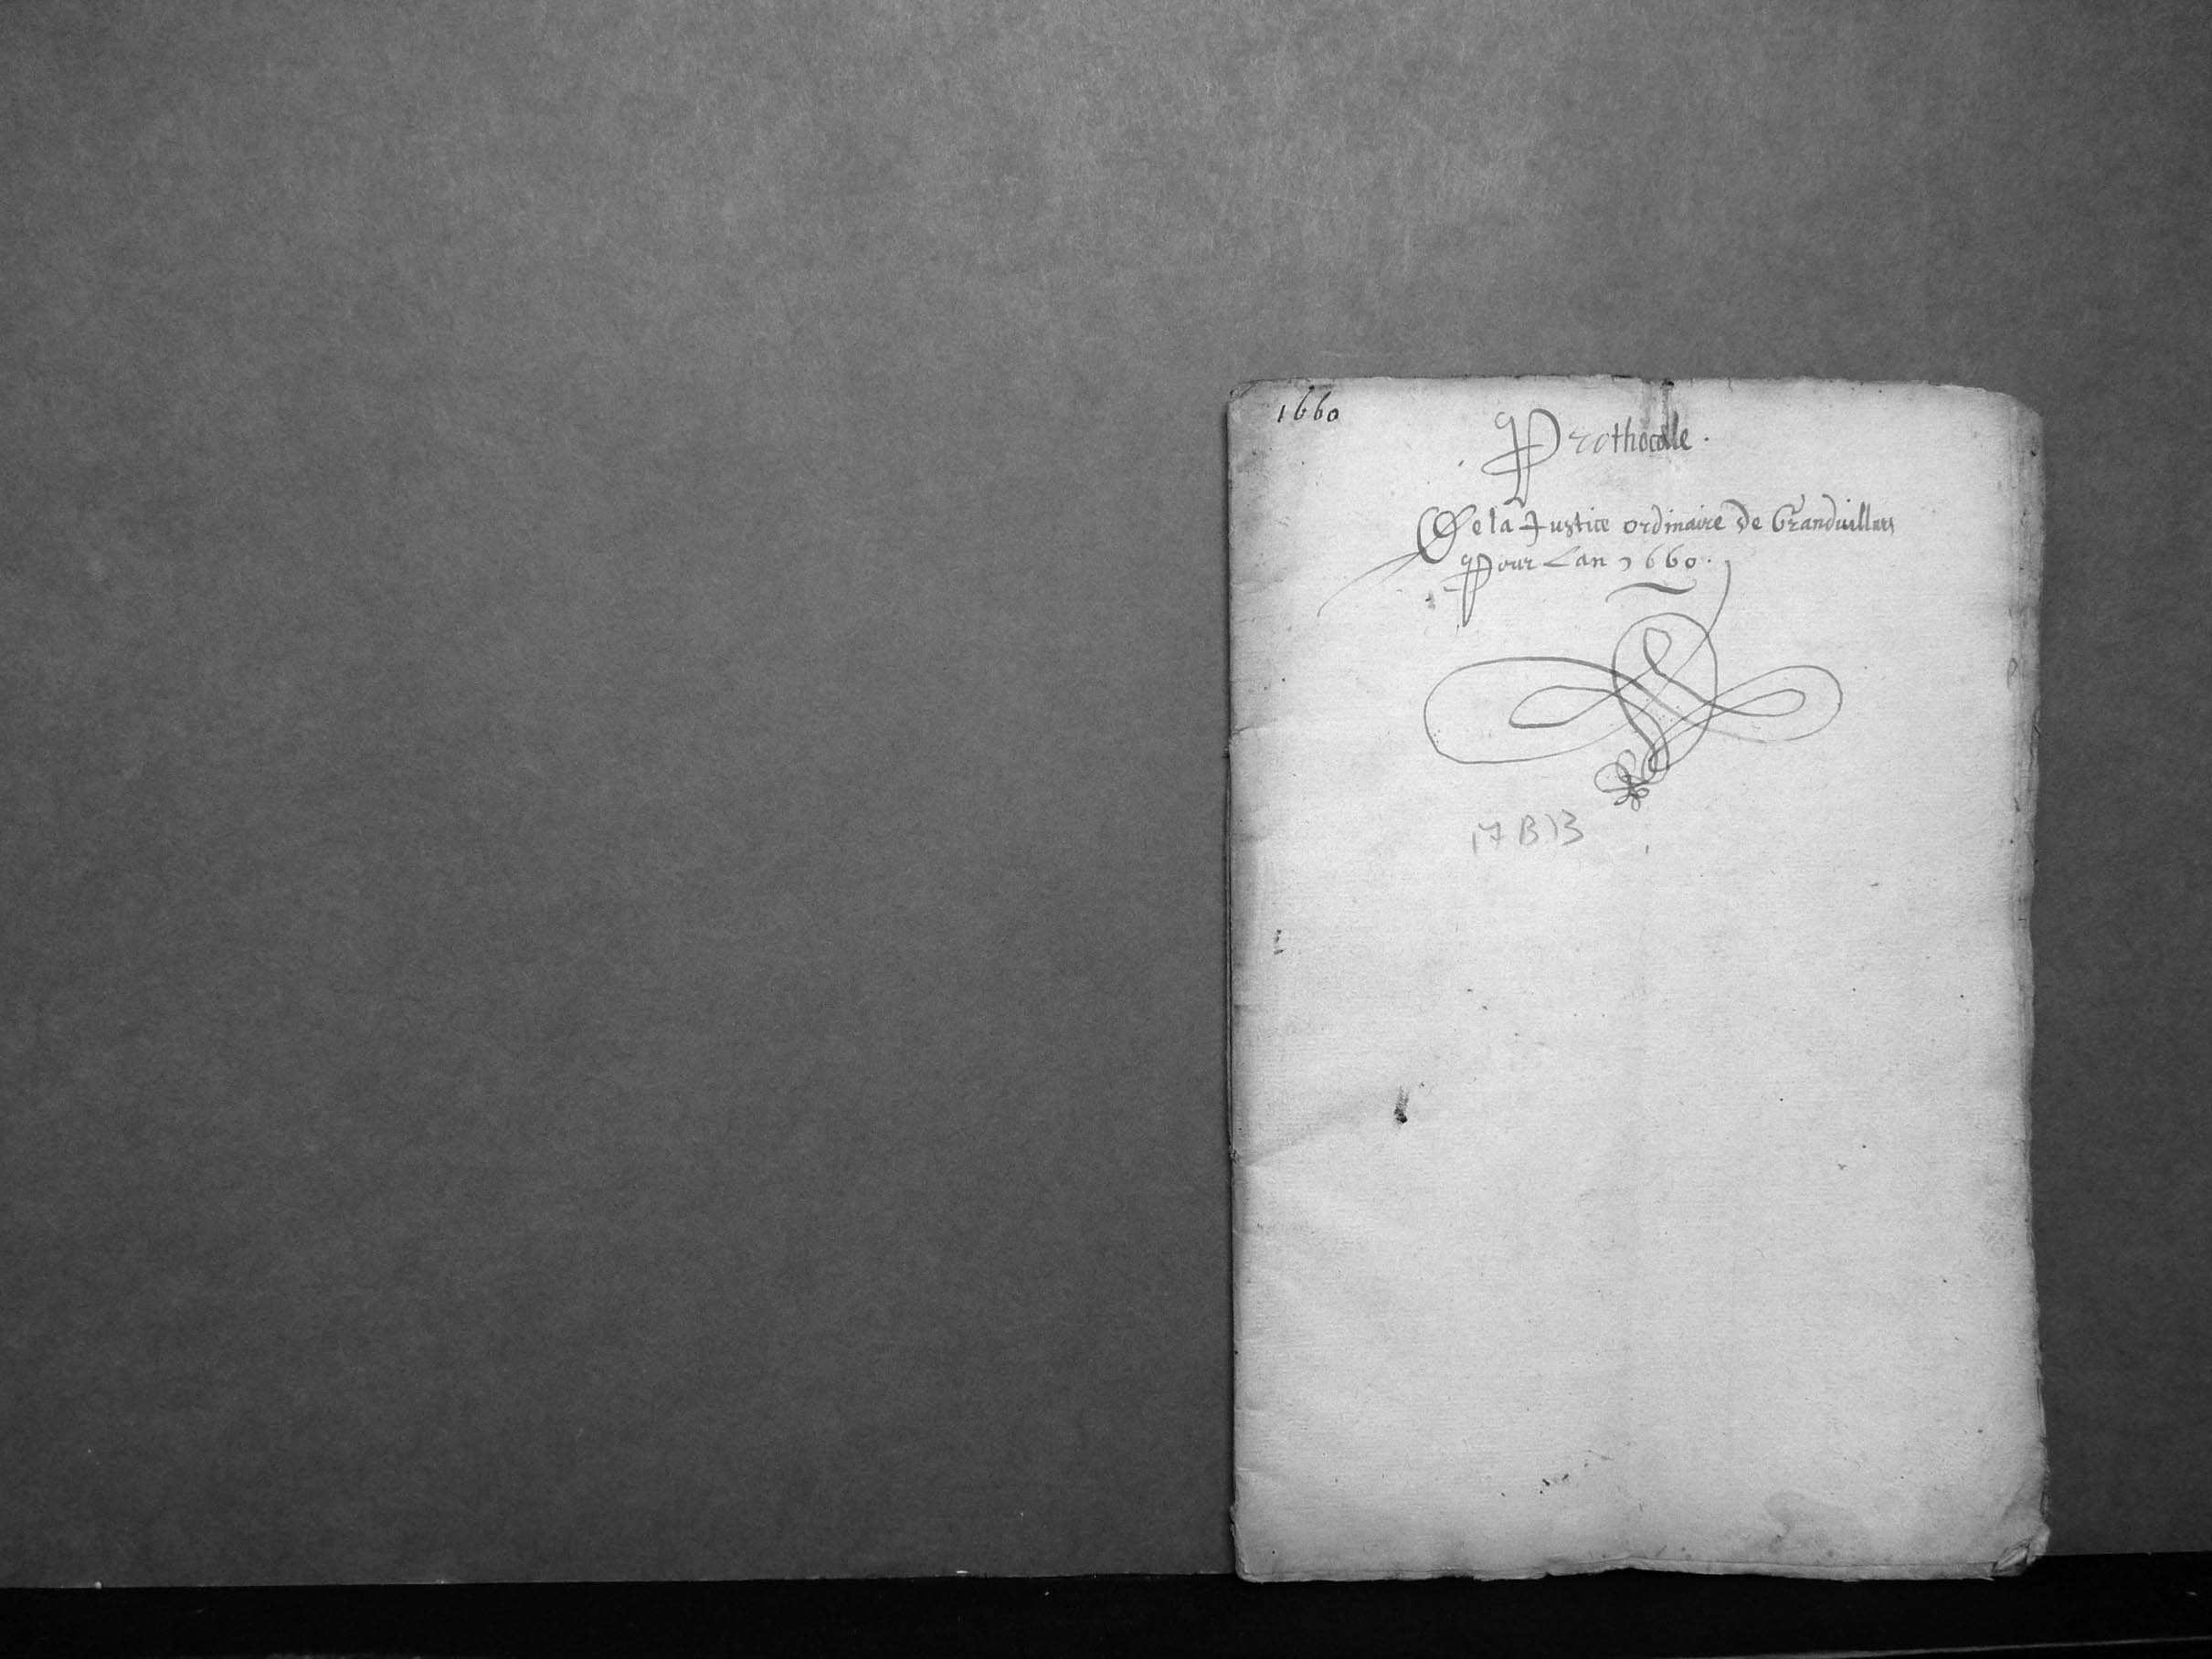 1660
Prothocolle.
De la Justice ordinaire de Granduillars
Pour Lan 1660.
17 B 13